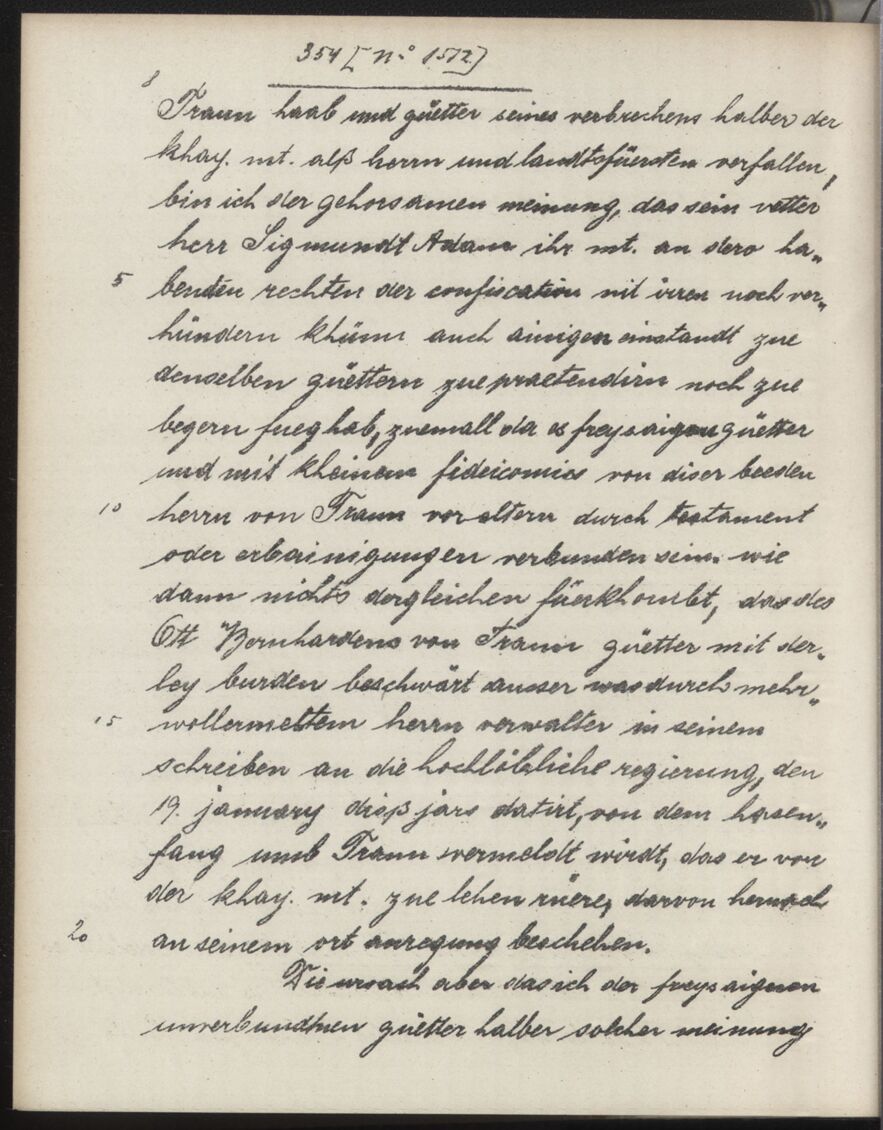 354 [N° 1572]
8
Traun haab und güetter seines verbrechens halber der
khay. mt. alß herrn und landtsfüersten verfallen,
bin ich der gehorsamen meinung, das sein vetter
herr Sigmundt Adam ihr mt. an dero ha„
5 benden rechten der confiscation nit irren noch ver„
hündern khünn auch ainigen einstandt zue
denselben güettern zue praetendirn noch zue
begern fueg hab, zuemall da es freys aigen güetter
und mit kheinem fideicomiss von diser beeden
10 herrn von Traun vor eltern durch testament
oder erbainigungen verbunden sein. wie
dann nichts dergleichen fürkhombt, das des
Ott Bernhardens von Traun güetter mit der„
ley burden beschwärt ausser was durch mehr„
15 wollermeltem herrn verwalter in seinem
schreiben an die hochlöbliche regierung, den
19. january diß jars datirt, von dem hasen„
fang umb Traun vermeldt wirdt, das er von
der khay. mt. zue lehen rüere, darvon hernach
20 an seinem ort anregung beschehen.
Die ursach aber das ich der freys aignen
unverbundtnen güetter halber solcher meinung